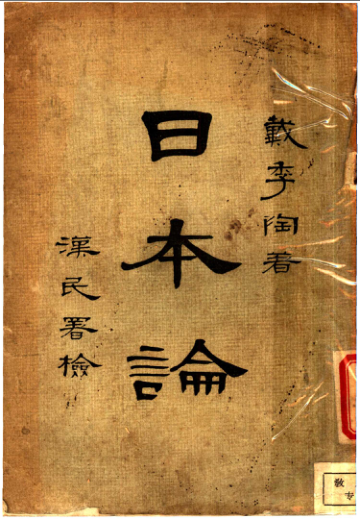 戴季陶著
日本論
漢民署檢
敎
专